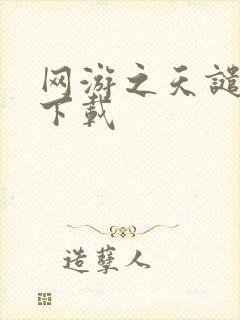 网游之天谴
下载
造孽人